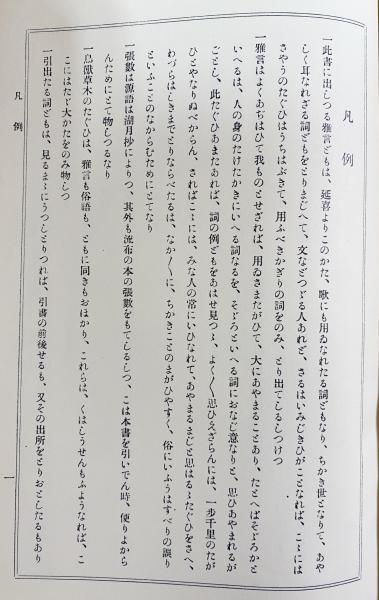 凡例
一此書に出しつる雅言どもは、延喜よりこのかた、歌にも用ゐなれたる詞どもなり、ちかき世となりて、あや
しく耳なれざる詞どもをとりまじへて、文などつゞる人あれど、さるはいみじきひがことなれば、こゝには
さやうのたぐひはうちはぶきて、用ふべきかぎりの詞をのみ、とり出てしるしつけつ
一雅言はよくあぢはひて我ものとせざれば、用ゐさまたがひて、大にあやまることあり、たとへばそゞろかと
いへるは、人の身のたけたかきにいへる詞なるを、そゞろといへる詞におなじ意なりと、思ひあやまれるが
ごとし、此たぐひあまたあれば、詞の例どもをあはせ見つゝ、よく〳〵思ひえざらんには、一步千里のたが
ひとやなりぬべからん、さればこゝには、みな人の常にいひなれて、あやまるまじと思はるゝたぐひをさへ、
わづらはしきまでとりならべたるは、なか〳〵に、ちかきことのまがひやすく、俗にいふうはすべりの誤り
といふことのなからむためにとてなり
一張數は源語は湖月抄によりつ、其外も流布の本の張數をもてしるしつ、こは本書を引いでん時、便りよから
んためにとて物しつるなり
一鳥獸草木のたぐひは、雅言も俗語も、ともに同きもおほかり、これらは、くはしうせんもふようなれば、こ
こにはたゞ大かたをのみ物しつ
一引出たる詞どもは、見るまゝにうつしとりつれば、引書の前後せるも、又その出所をとりおとしたるもあり
凡例
一